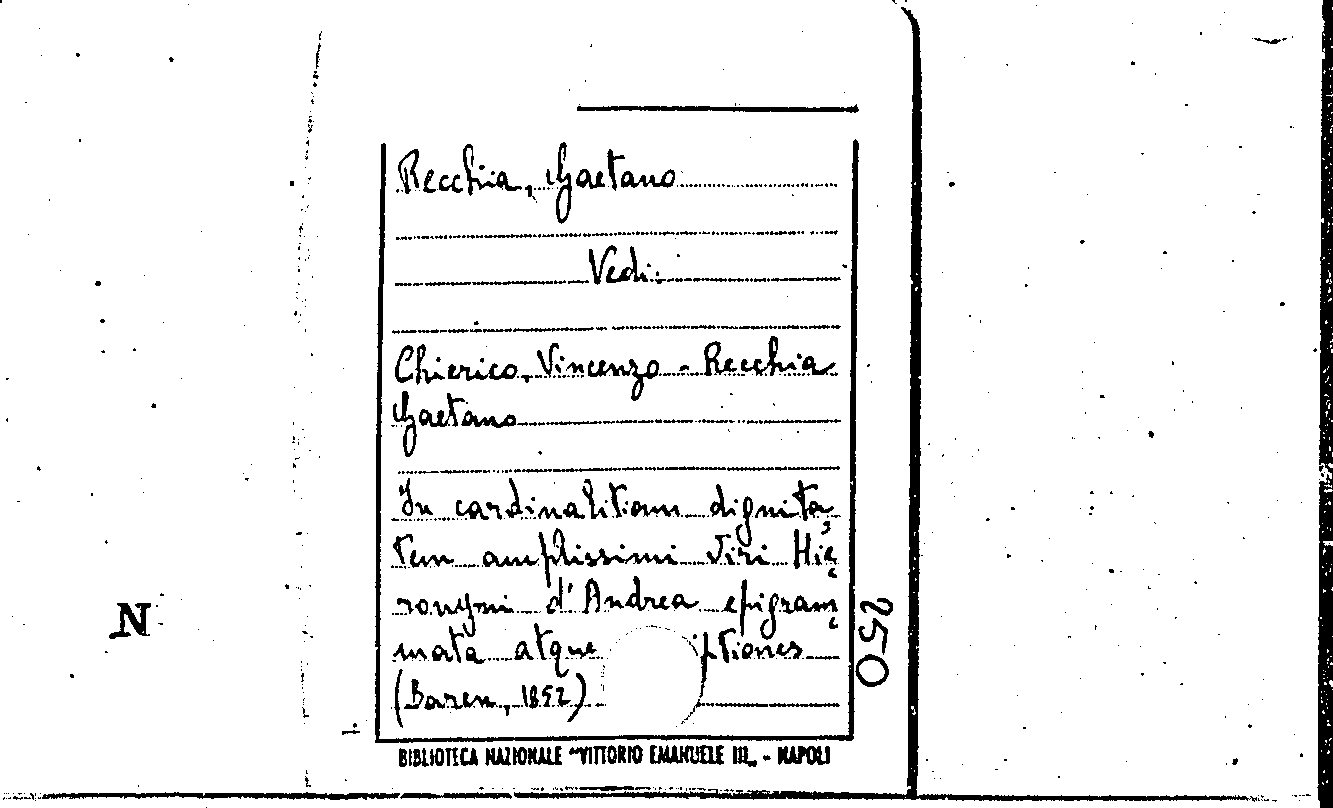 Recchia, Gaetano
Vedi:
Chierico, Vincenzo - Recchia
Gaetano
In cardinalitiam dignita=
tem amplissimi viri Hie=
ronymi d'Andrea epigram=
mata atque ptiones
(Baren, 1852)
250
N
BIBLIOTECA NAZIONALE "VITTORIO EMANUELE III„ - NAPOLI